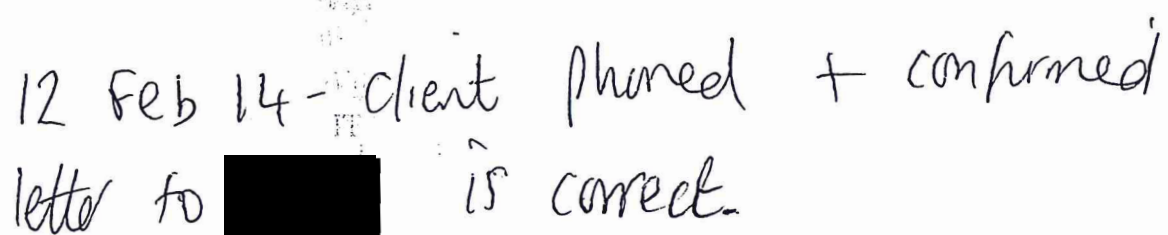 12 Feb 14 - Client phoned + confirmed
letter to is correct.